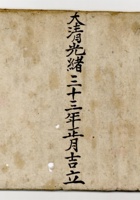 大清光緒三十三年正月吉立